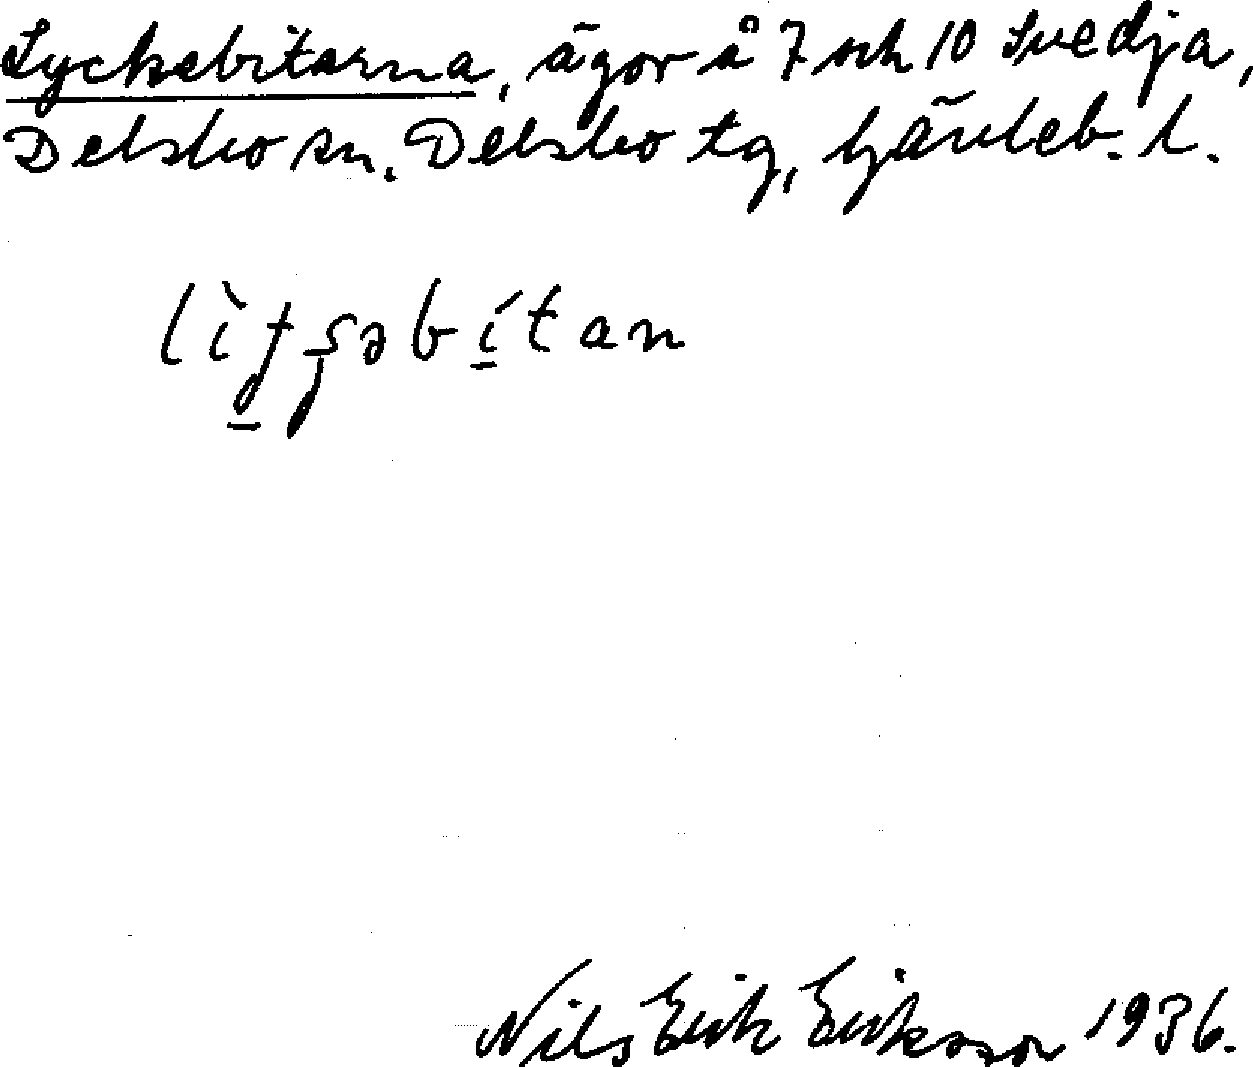 Lyckebitarna, ägor å 7 och 10 Svedja,
Delsbo sn. Delsbo tg, Gävleb. l.
Nils Erik Eriksson 1936.